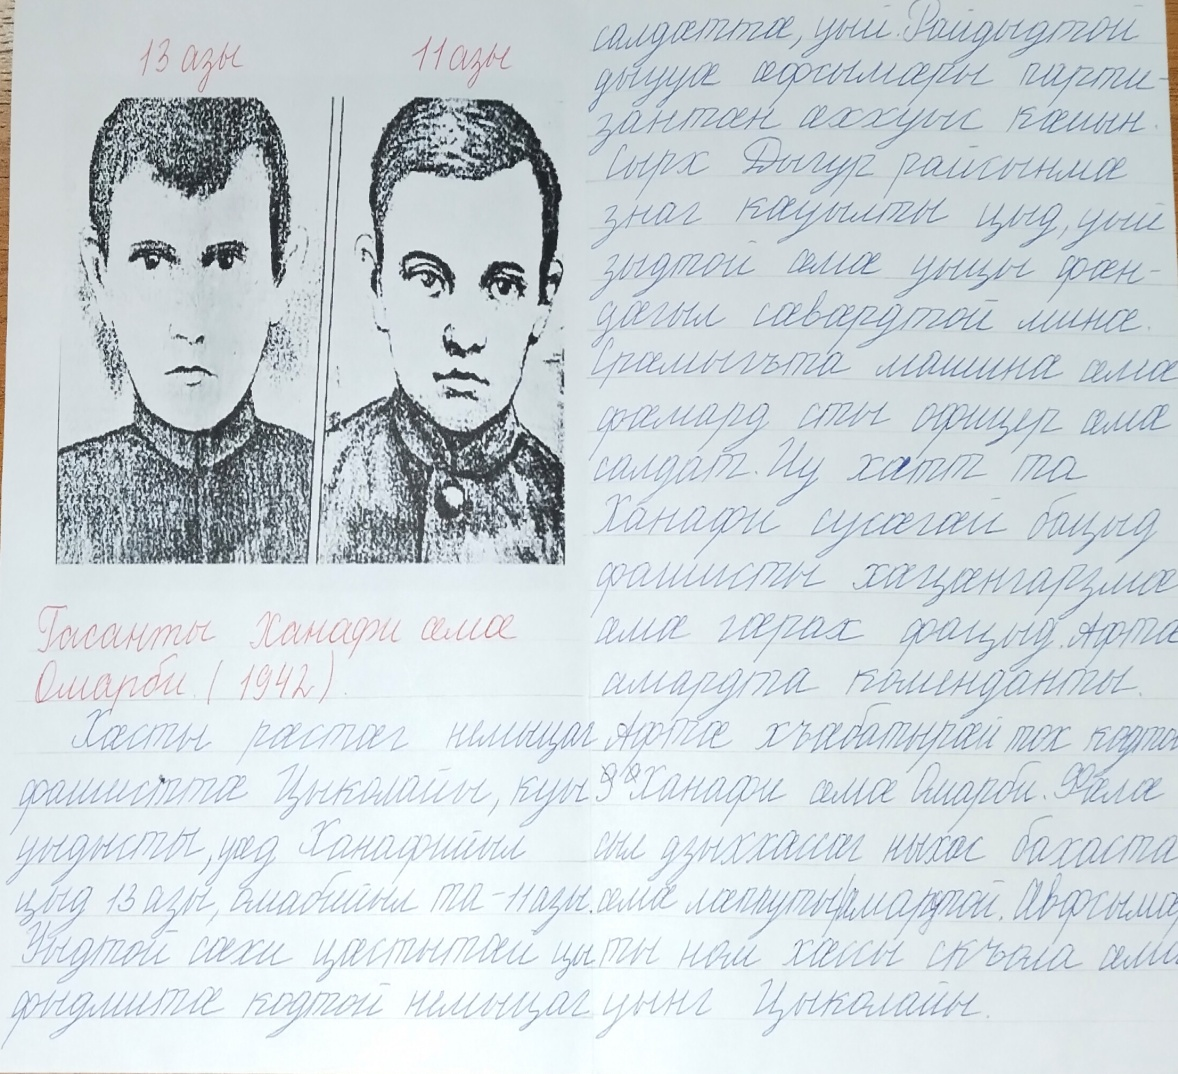 13 азы
11 азы
Гасанты Ханафи æмæ
Омарби. (1942).
Хæсты рæстæг немыцаг
фашисттæ Цыколайы, куы
уыдысты, уæд Ханафийыл
цыд 13 азы, Омабийыл та - 11 азы.
Уыдтой сæхи цæстытæй цы
фыдмитæ кодтой немыцаг
салдæттæ, уый. Райдыдтой
дыууæ æфсымæры парти-
зантæн æххуыс кæнын.
Сырх Дыгур райсынмæ
знаг кæуылты цыд, уый
зыдтой æмæ уыцы фæн-
дагыл сæвæрдтой минæ.
Срæмыгъта машинæ æмæ
фæмард сты офицер æмæ
салдат. Иу хатт та
Ханафи сусæгæй бацыд
фашисты хæцæнгарзмæ
æмæ гæрах фæцыд. Афтæ
амардта коменданты.
Афтæ хъæбатырæй тох кодтой
Ханафи æмæ Омарби. Фæлæ
сыл дзыххæссæг ныхас бахаста
æмæ лæппуты амардтой. Æвфсымæ
ты ном хæссы скъола æмæ
уынг Цыколайы.